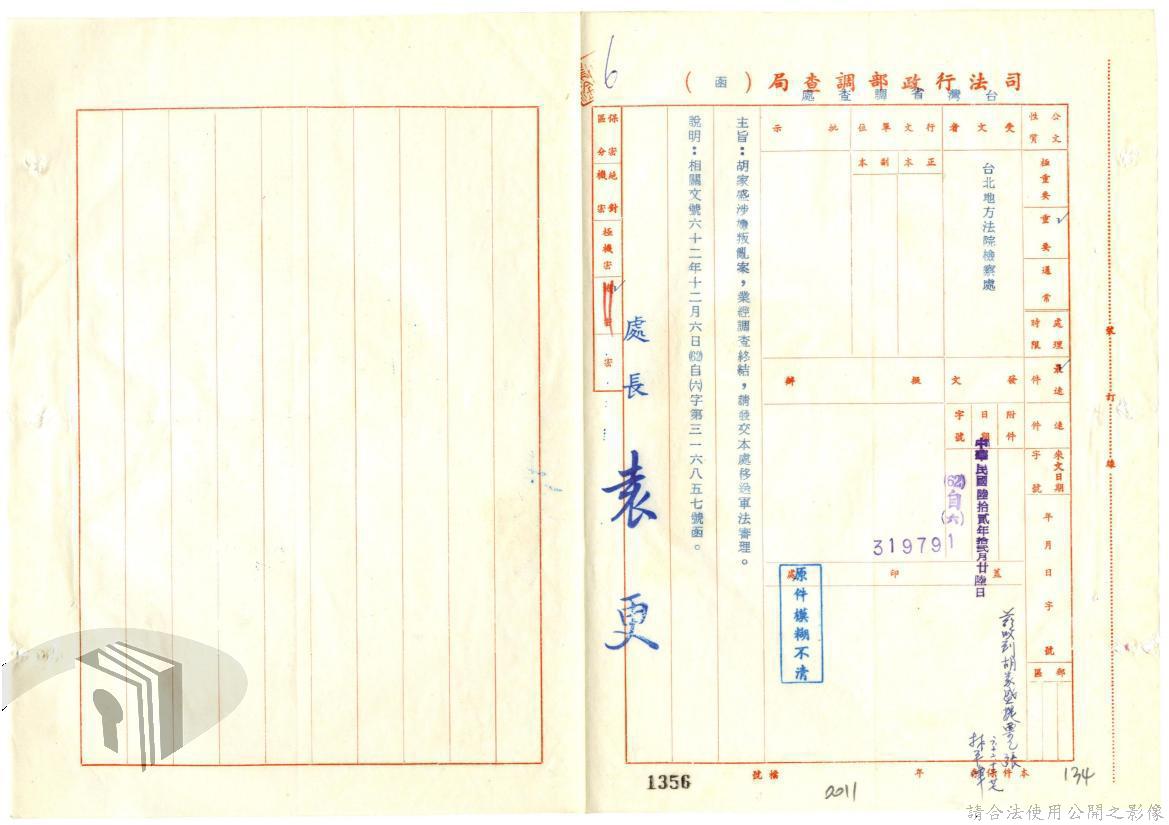 6
司法行政部調查局(函)
台灣省調查處
公文性質
極重要
重要
通常
處理時限
最速件
速件
來文日期
字號
年月日
字
號
郵區
受文者
台北地方法院檢察處
行文單位
正本
副本
批示
發文
附件
日期
中華民國陸拾貳年拾貳月廿陸日
字號
(62)自(六)
319791
擬辦
蓋印處
原件模糊不清
主旨:胡家盛涉嫌叛亂案,業經調查終結,請發交本處移送軍法審理。
說明:相關文號六十二年十二月六日(62)自(六)字第三一六八五七號函。
處長袁更
保密區分
絕對機密
極機密
機密
密
裝訂線
茲收到胡家盛提票乙張
1356
檔號
年
本件保存
2011
134
請合法使用公開之影像